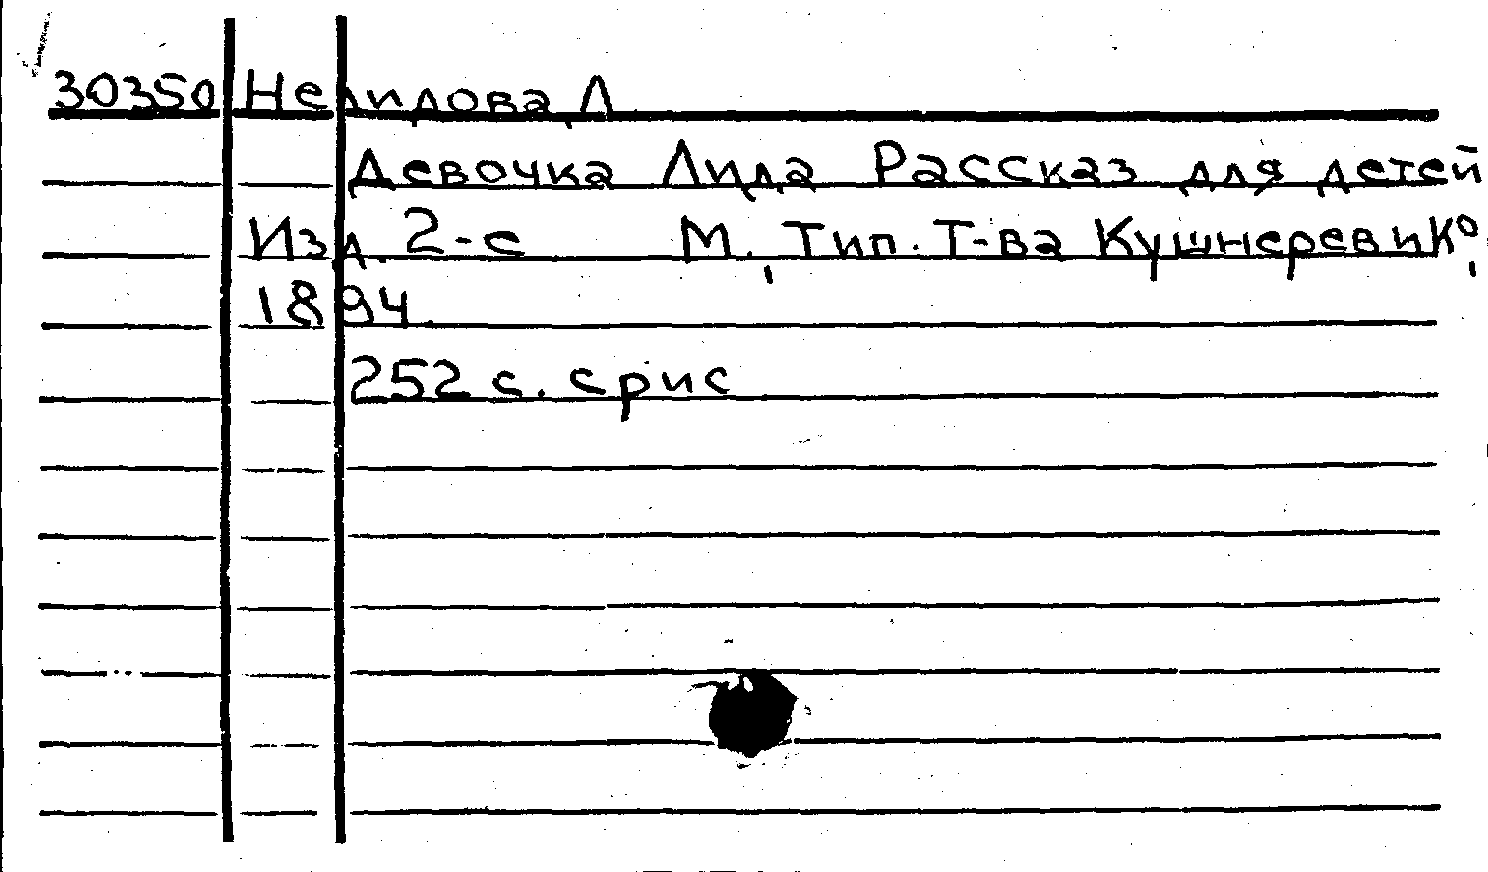 30350 Нелидова, Л
Девочка Лида Рассказ для детей
Изд. 2-е М., Тип. Т-ва Кушнерев и К°,
1894.
252 с. с рис